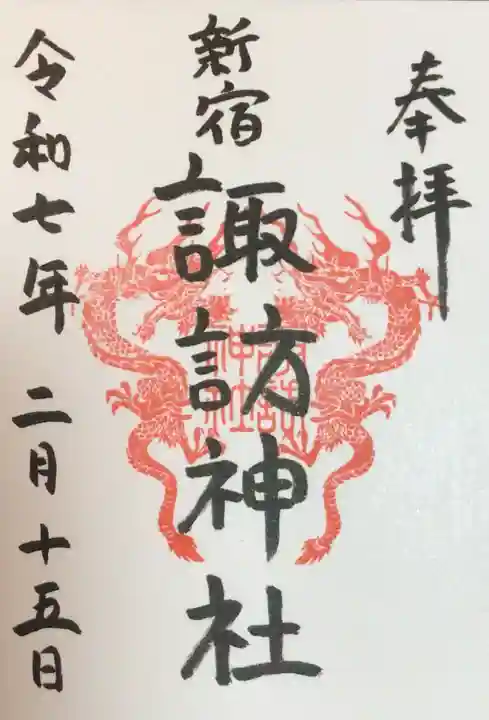 奉拝
新宿
諏訪神社
諏訪
神社
令和七年 二月十五日